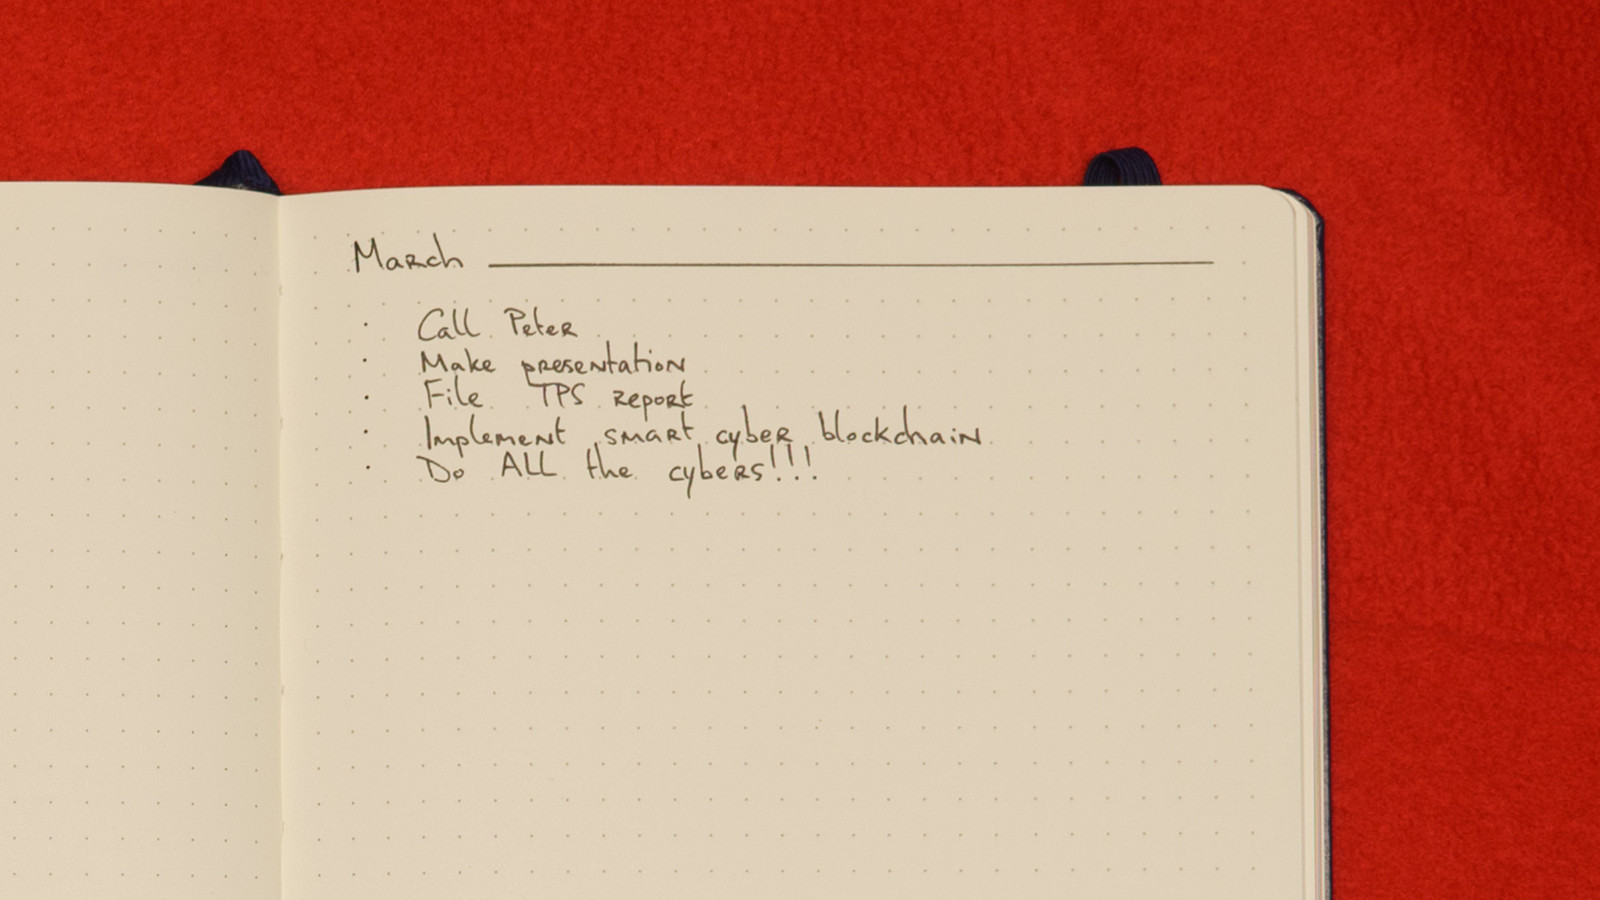 March
· Call Peter
· Make presentation
· File TPS report
· Implement smart cyber blockchain
· Do ALL the cybers!!!